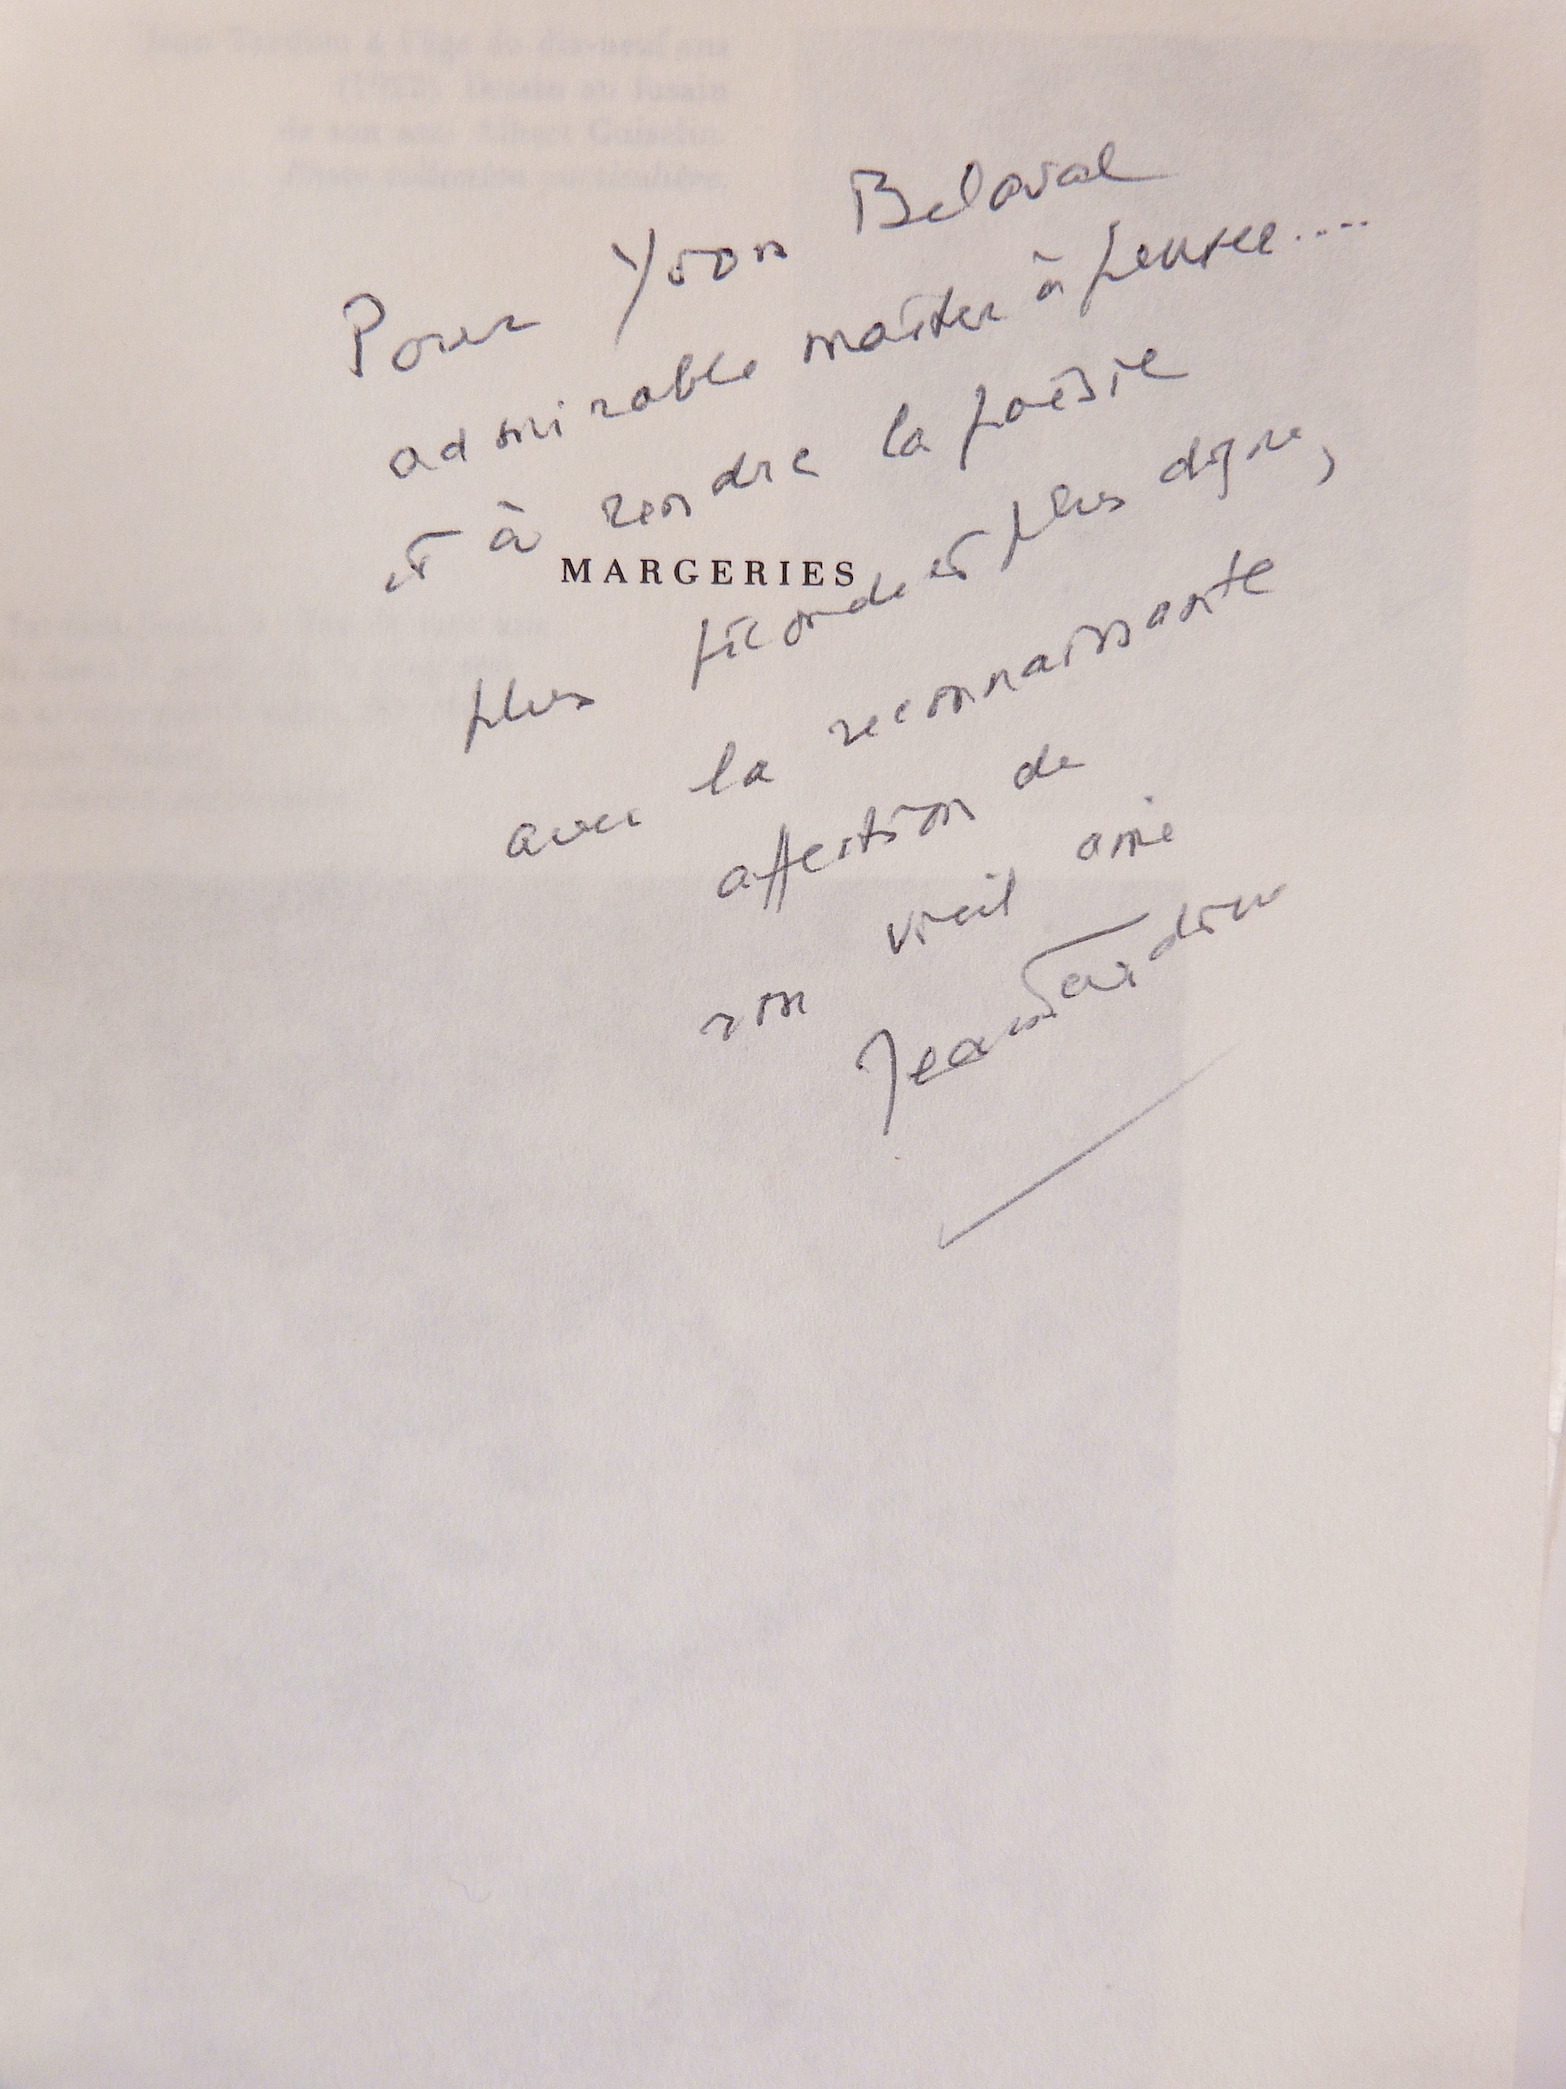 Pour Yvon Belaval
admirable maître à penser....
et à rendre la poésie
MARGERIES
plus féconde et plus digne,
avec la reconnaissante
affection de
son vieil ami
Jean Tardieu